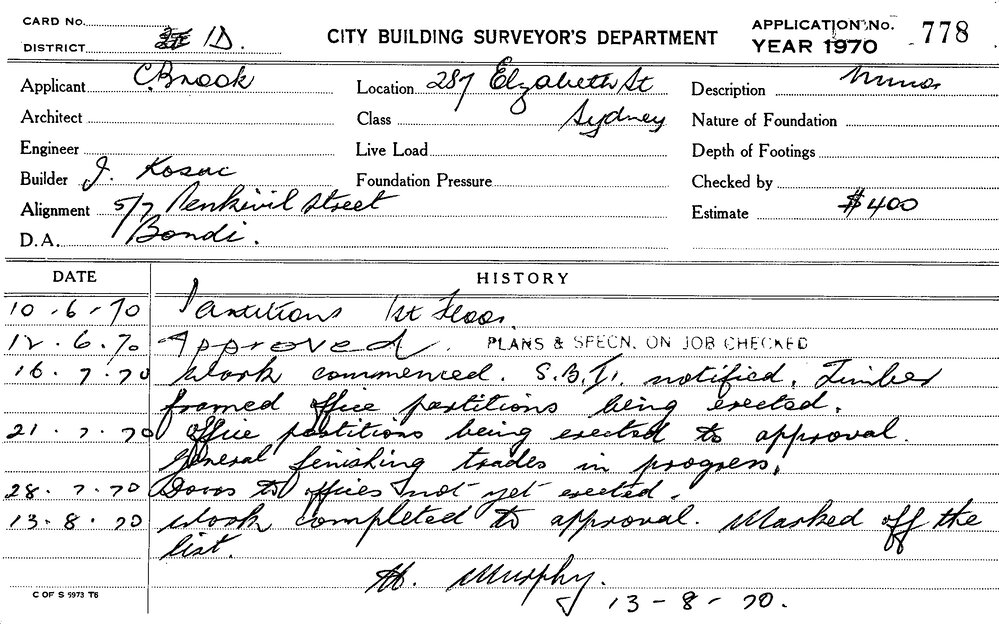 CARD No.
DISTRICT 1D.
CITY BUILDING SURVEYOR'S DEPARTMENT
APPLICATION No. 778
YEAR 1970
Applicant C. Brook
Location 287 Elizabeth St
Description Minor
Architect
Class Sydney
Nature of Foundation
Engineer
Live Load
Depth of Footings
Builder J. Kosac
Foundation Pressure
Checked by
Alignment 5/7 Penkivil Street
Estimate $400
D.A. Bondi.
DATE HISTORY
10.6.70 Partitions 1st Floor.
12.6.70 Approved. PLANS & SPECN. ON JOB CHECKED
16.7.70 Work commenced. S.B.I. notified. Timber
framed office partitions being erected.
21.7.70 Office partitions being erected to approval.
General finishing trades in progress.
28.7.70 Doors to offices not yet erected.
13.8.70 Work completed to approval. Marked off the
list.
H. Murphy.
13-8-70.
C OF S 5973 T6